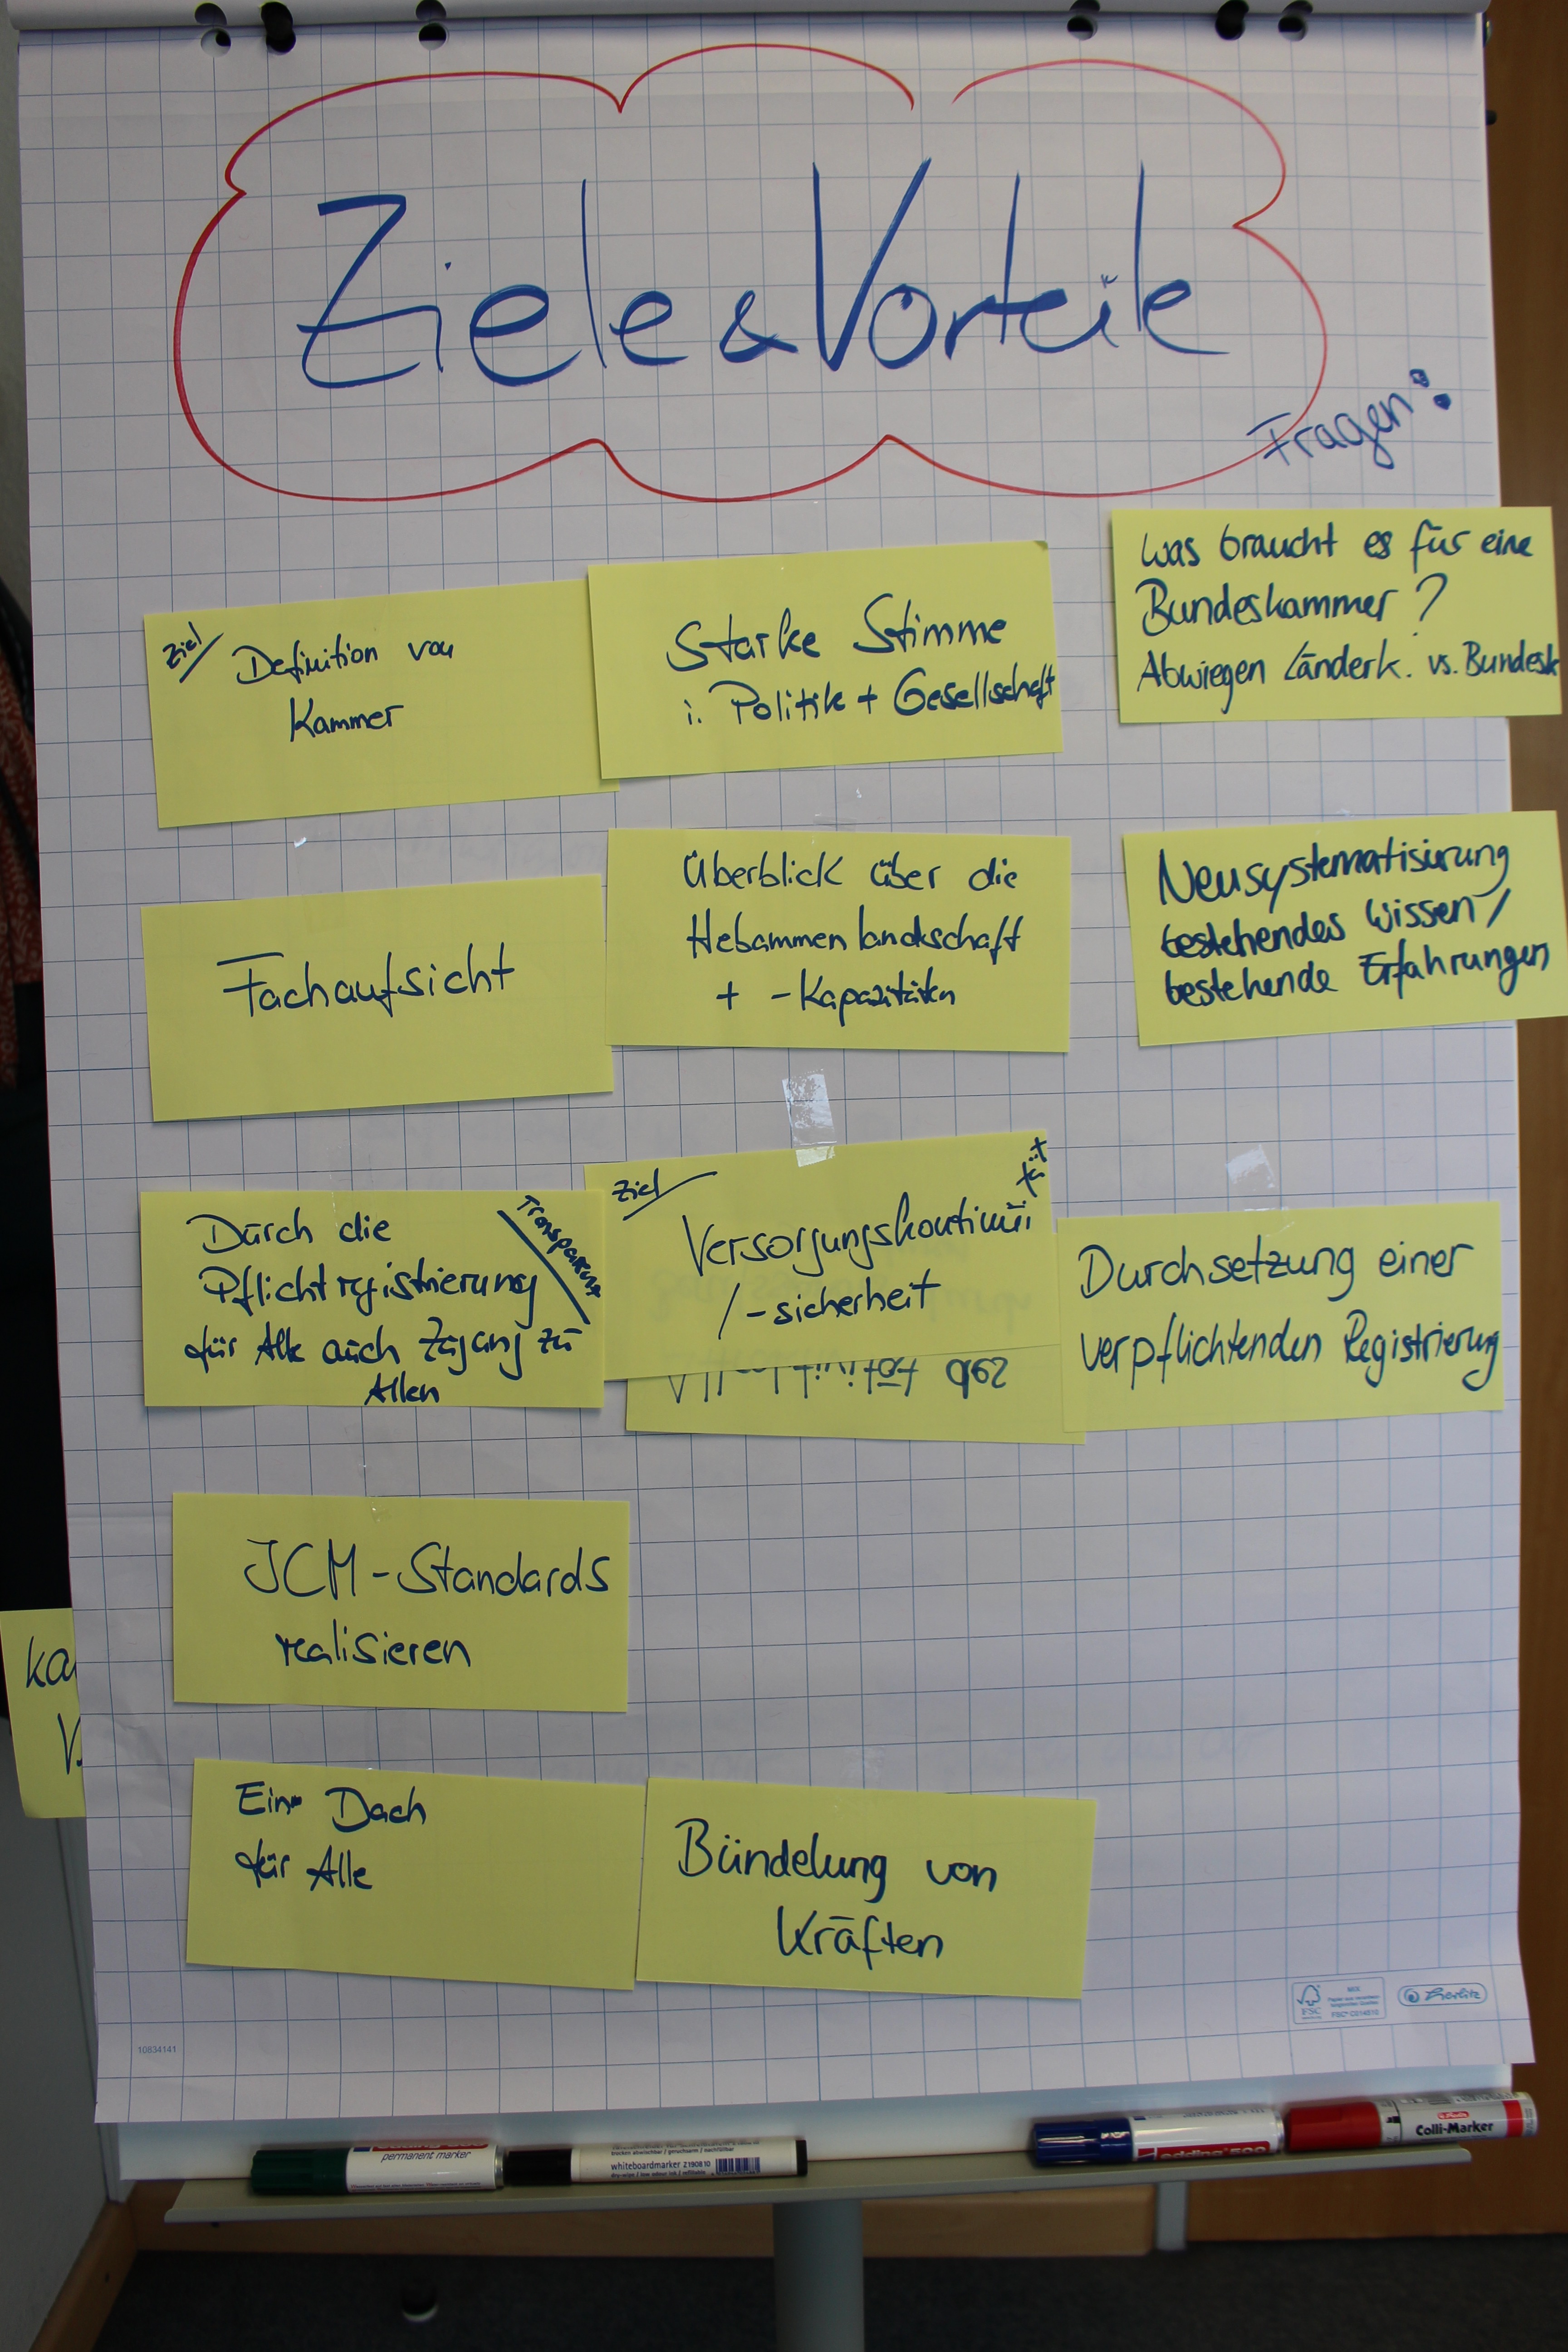 Ziele & Vorteile
Fragen:
Ziel
Definition von
Kammer
Starke Stimme
i. Politik + Gesellschaft
Was braucht es für eine
Bundeskammer?
Abwiegen Länderk. vs. Bundesk
Fachaufsicht
Überblick über die
Hebammenlandschaft
+ -Kapazitäten
Neusystematisierung
bestehendes Wissen/
bestehende Erfahrungen
Durch die
Pflichtregistrierung
für Alle auch Zugang zu
Allen
Transparenz
Ziel
Versorgungskontinui
tät
/-sicherheit
Durchsetzung einer
verpflichtenden Registrierung
ICM-Standards
realisieren
Ein Dach
für Alle
Bündelung von
Kräften
Ka
FSC
MIX
FSC® C014510
herlitz
10834141
permanent marker
whiteboardmarker 2190810
edding 500
Colli-Marker